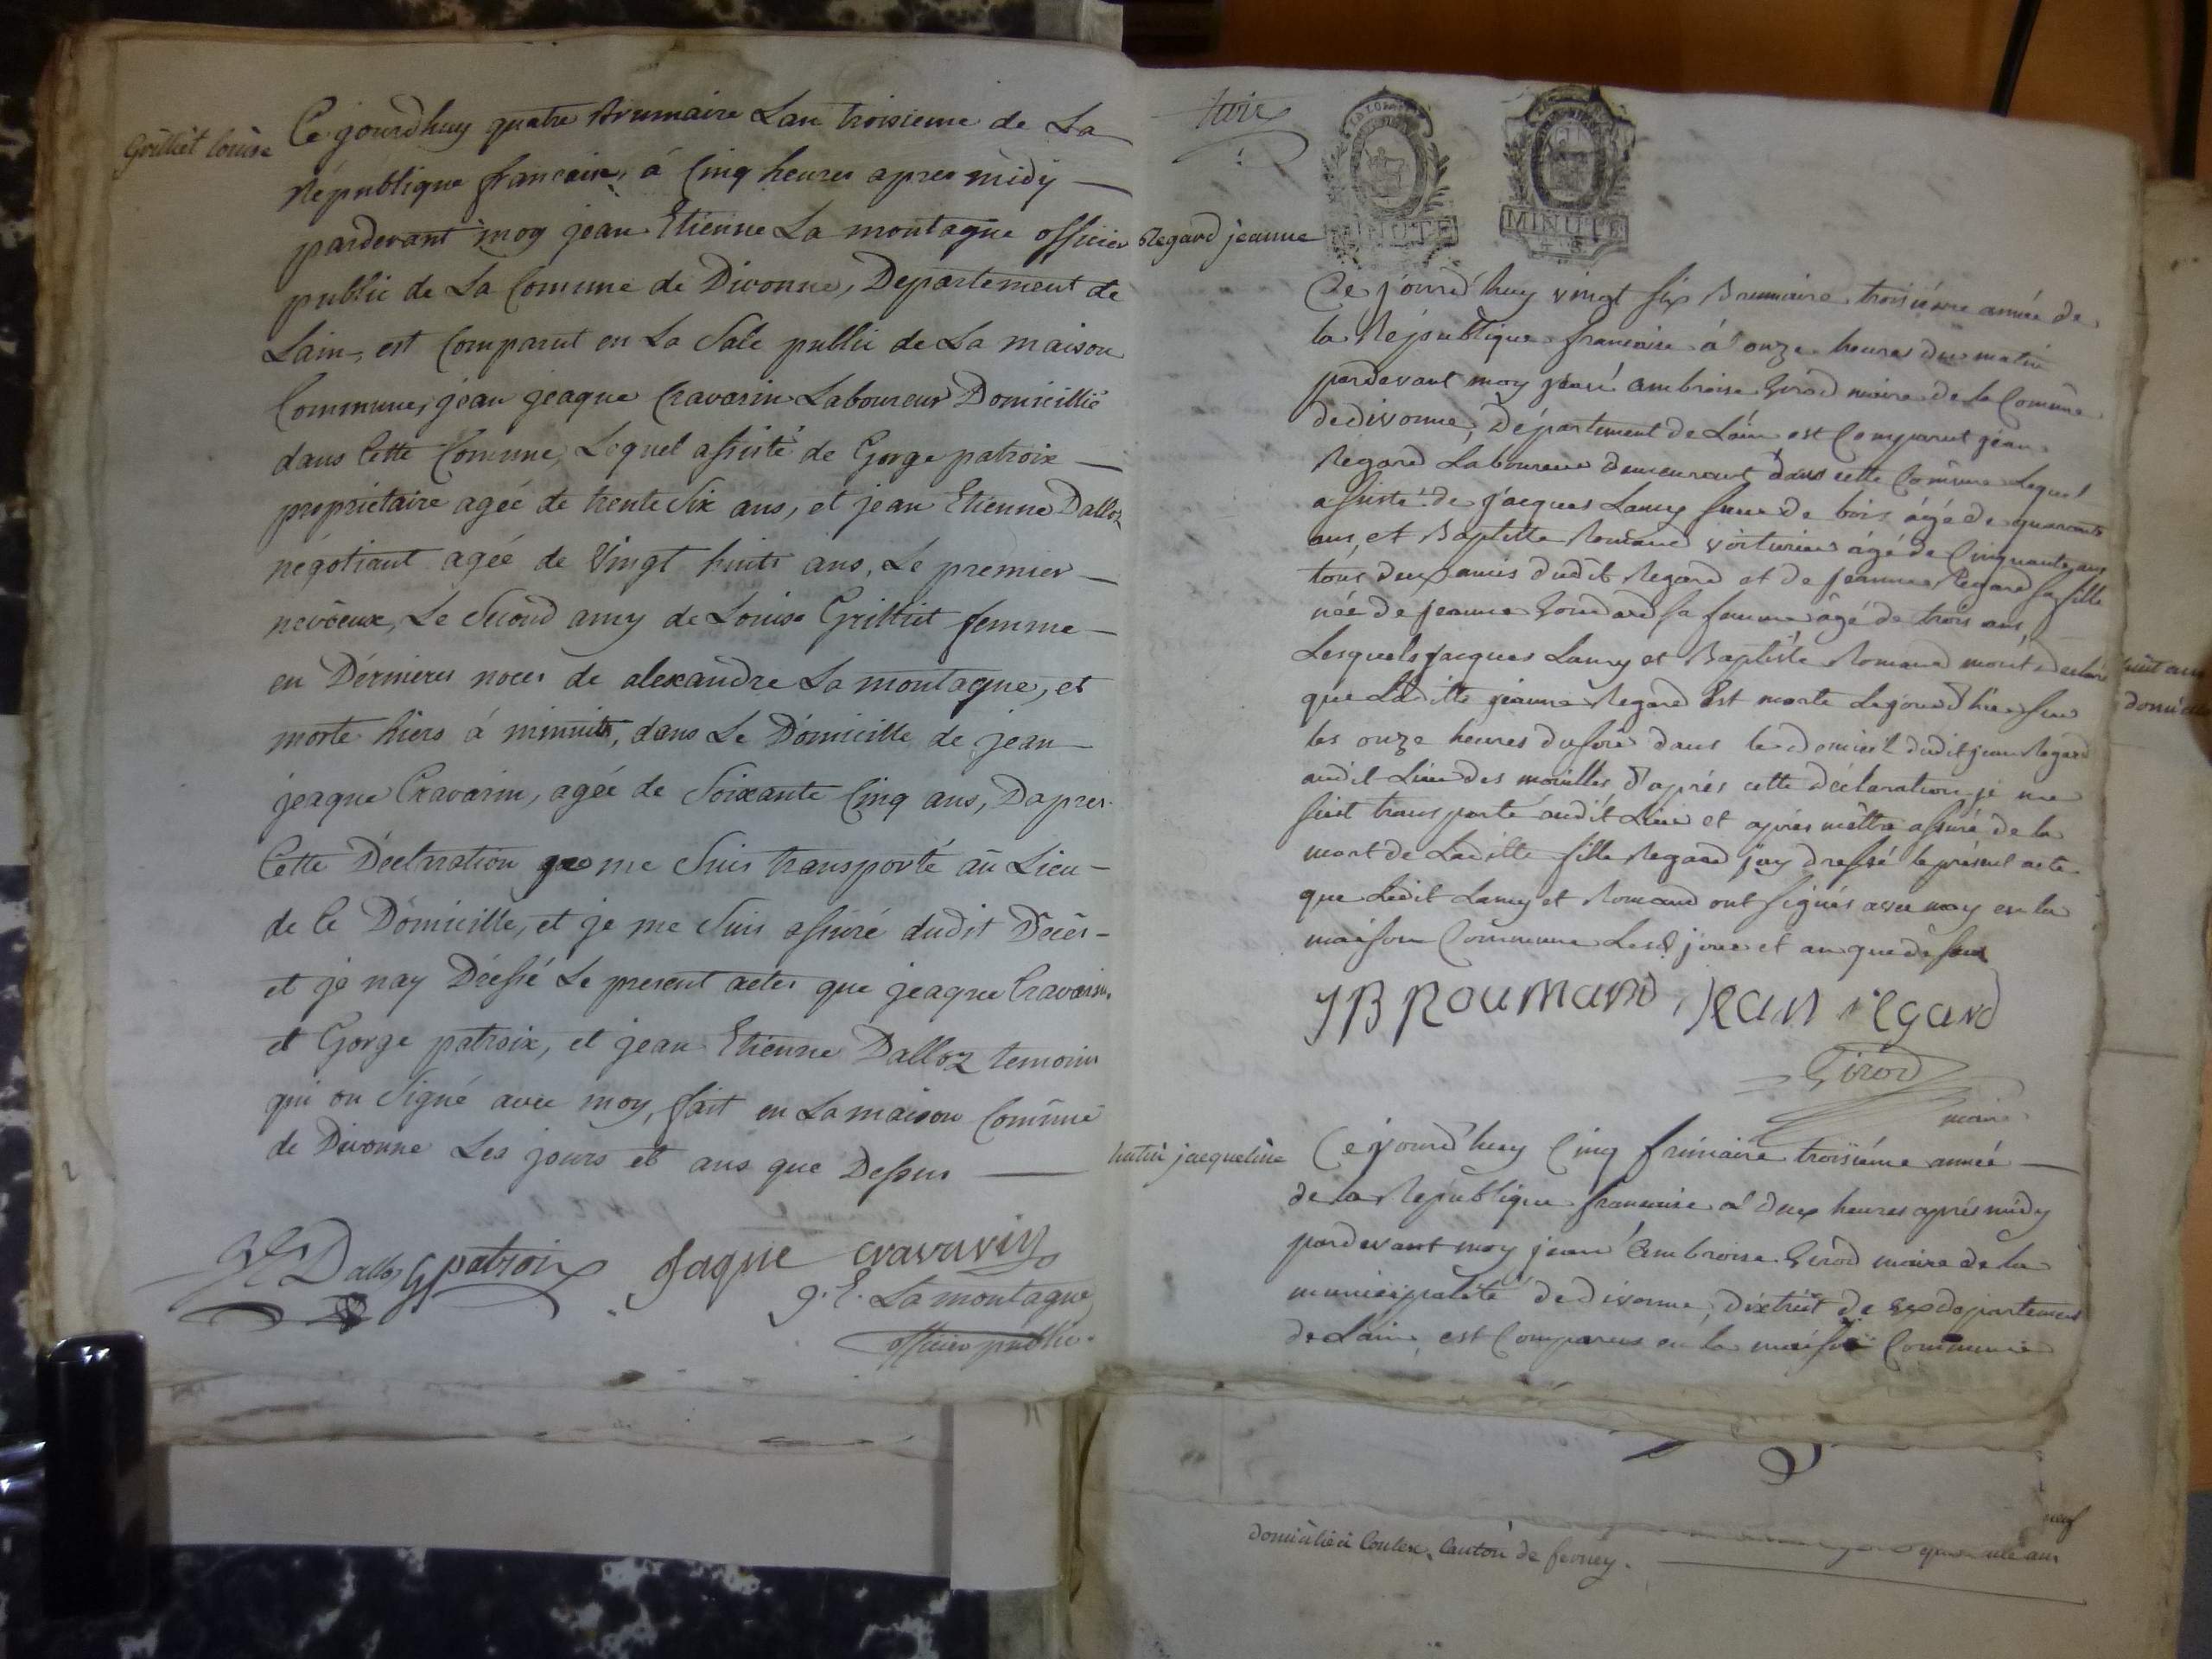 Grilliet louise
Ce jourdhuy quatre Brumaire Lan troisieme de La
République francaise, á Cinq heures apres midy
pardevant moy jean Etienne La montagne officier
public de La Comune de Divonne, Departement de
Lain, est Comparut en La Sale public de La maison
Commune, jean jeaque Cravarin Laboureur Domicillié
dans Cette Comune, Lequel assisté de Gorge patroix
propriétaire agée de trente Six ans, et jean Etienne Dalloz
négotiant agée de Vingt huits ans, Le premier
neveux, Le Second amy de Louise Grilliet femme
en Dérnieres noces de alexandre La montagne, et
morte hiers á minuits, dans Le Domicille de jean
jeaque Cravarin, agée de Soixante Cinq ans, Dapres
Cette Déclaration je me Suis transporté au Lieu
de Ce Domicille, et je me Suis assuré dudit Décès
et je nay Dréssé Le present actes que jeaque Cravarin
et Gorge patroix, et jean Etienne Dalloz temoins
qui on Signé avec moy, fait en La maison Comune
de Divonne Les jours et ans que Dessus
JE Dalloz G patroix Jaque cravarin
J. E. La montagne
officier public
MINUTE
MINUTE
Regard jeanne
Ce jourd'huy vingt six Brumaire troisiéme année de
la République francaise á onze heures du matin
pardevant moy jean ambroise Girod maire de la Comune
de divonne, Département de Lain est Comparut jean
Regard Laboureur demeurant dans cette Comune Lequel
assisté de jacques Lamy de bois ágé de quarante
ans, et Baptiste Romand voiturier ágé de Cinquante ans
tous deux amis dudit Regard et de jeanne Regard sa fille
née de jeanne Goudard sa femme âgé de trois ans,
Lesquels jacques Lamy et Baptiste Romand mont déclaré
que Laditte jeanne Regard Est morte Lejourd'hier sur
les onze heures du soir dans le domicil dudit jean Regard
audit Lieu des mouilles, d'aprés cette déclaration je me
suis transporté audit Lieu et aprés mêttre assuré de la
mort de Laditte fille Regard jay dressé le présent acte
que Ledit Lamy et Romand ont signés avec moy en la
maison Commune Lesd jour et an que dessus
JB Roumand, Jean regard
Girod
maire
hutin jacqueline
Cejourd'huy Cinq frimaire troisiéme année
de la Republique francaise á deux heures aprés midy
pardevant moy jean Ambroise Girod maire de la
municipalité de divonne, distrist de Gex departement
de Lain, est Comparus en la maison Commune
huit ans
domicile
domicilié á Coulex, Canton de ferney.